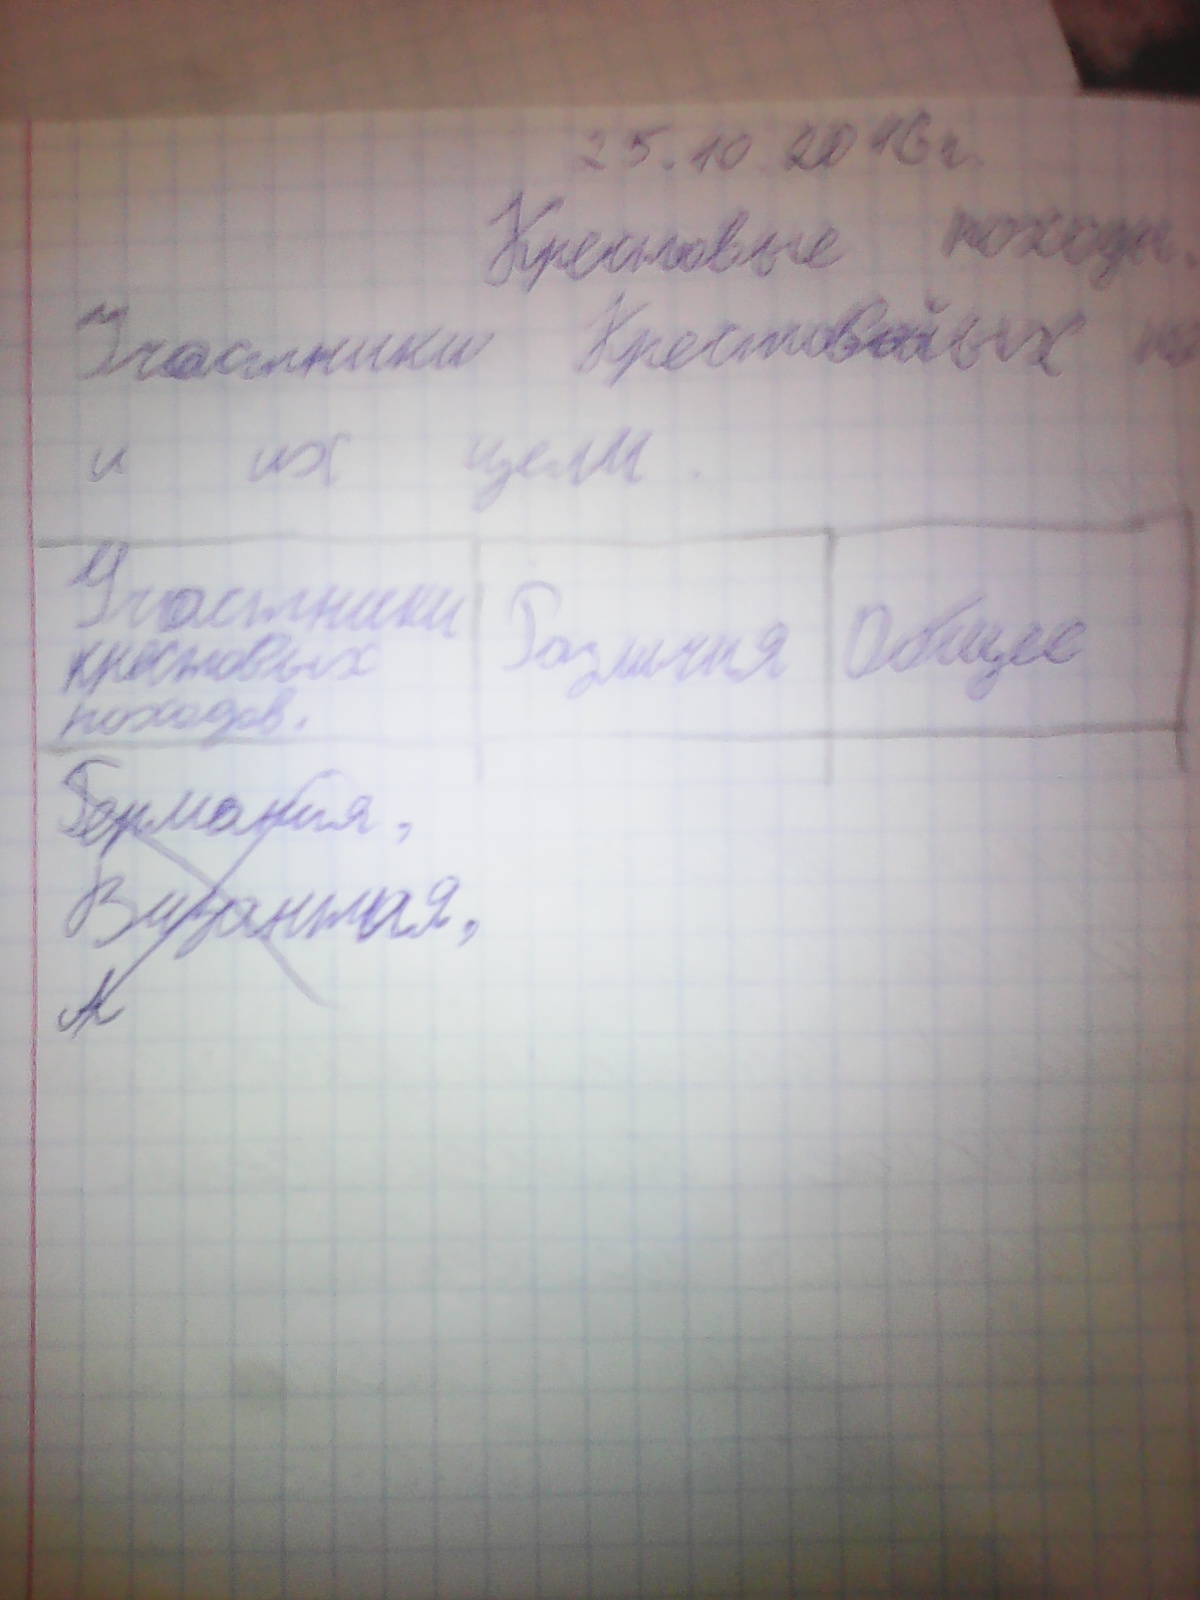 25.10.2016г.
Крестовые походы.
Участники Крестовых
и их цели.
Участники
крестовых
походов.
Различия
Общее
Германия,
Византия,